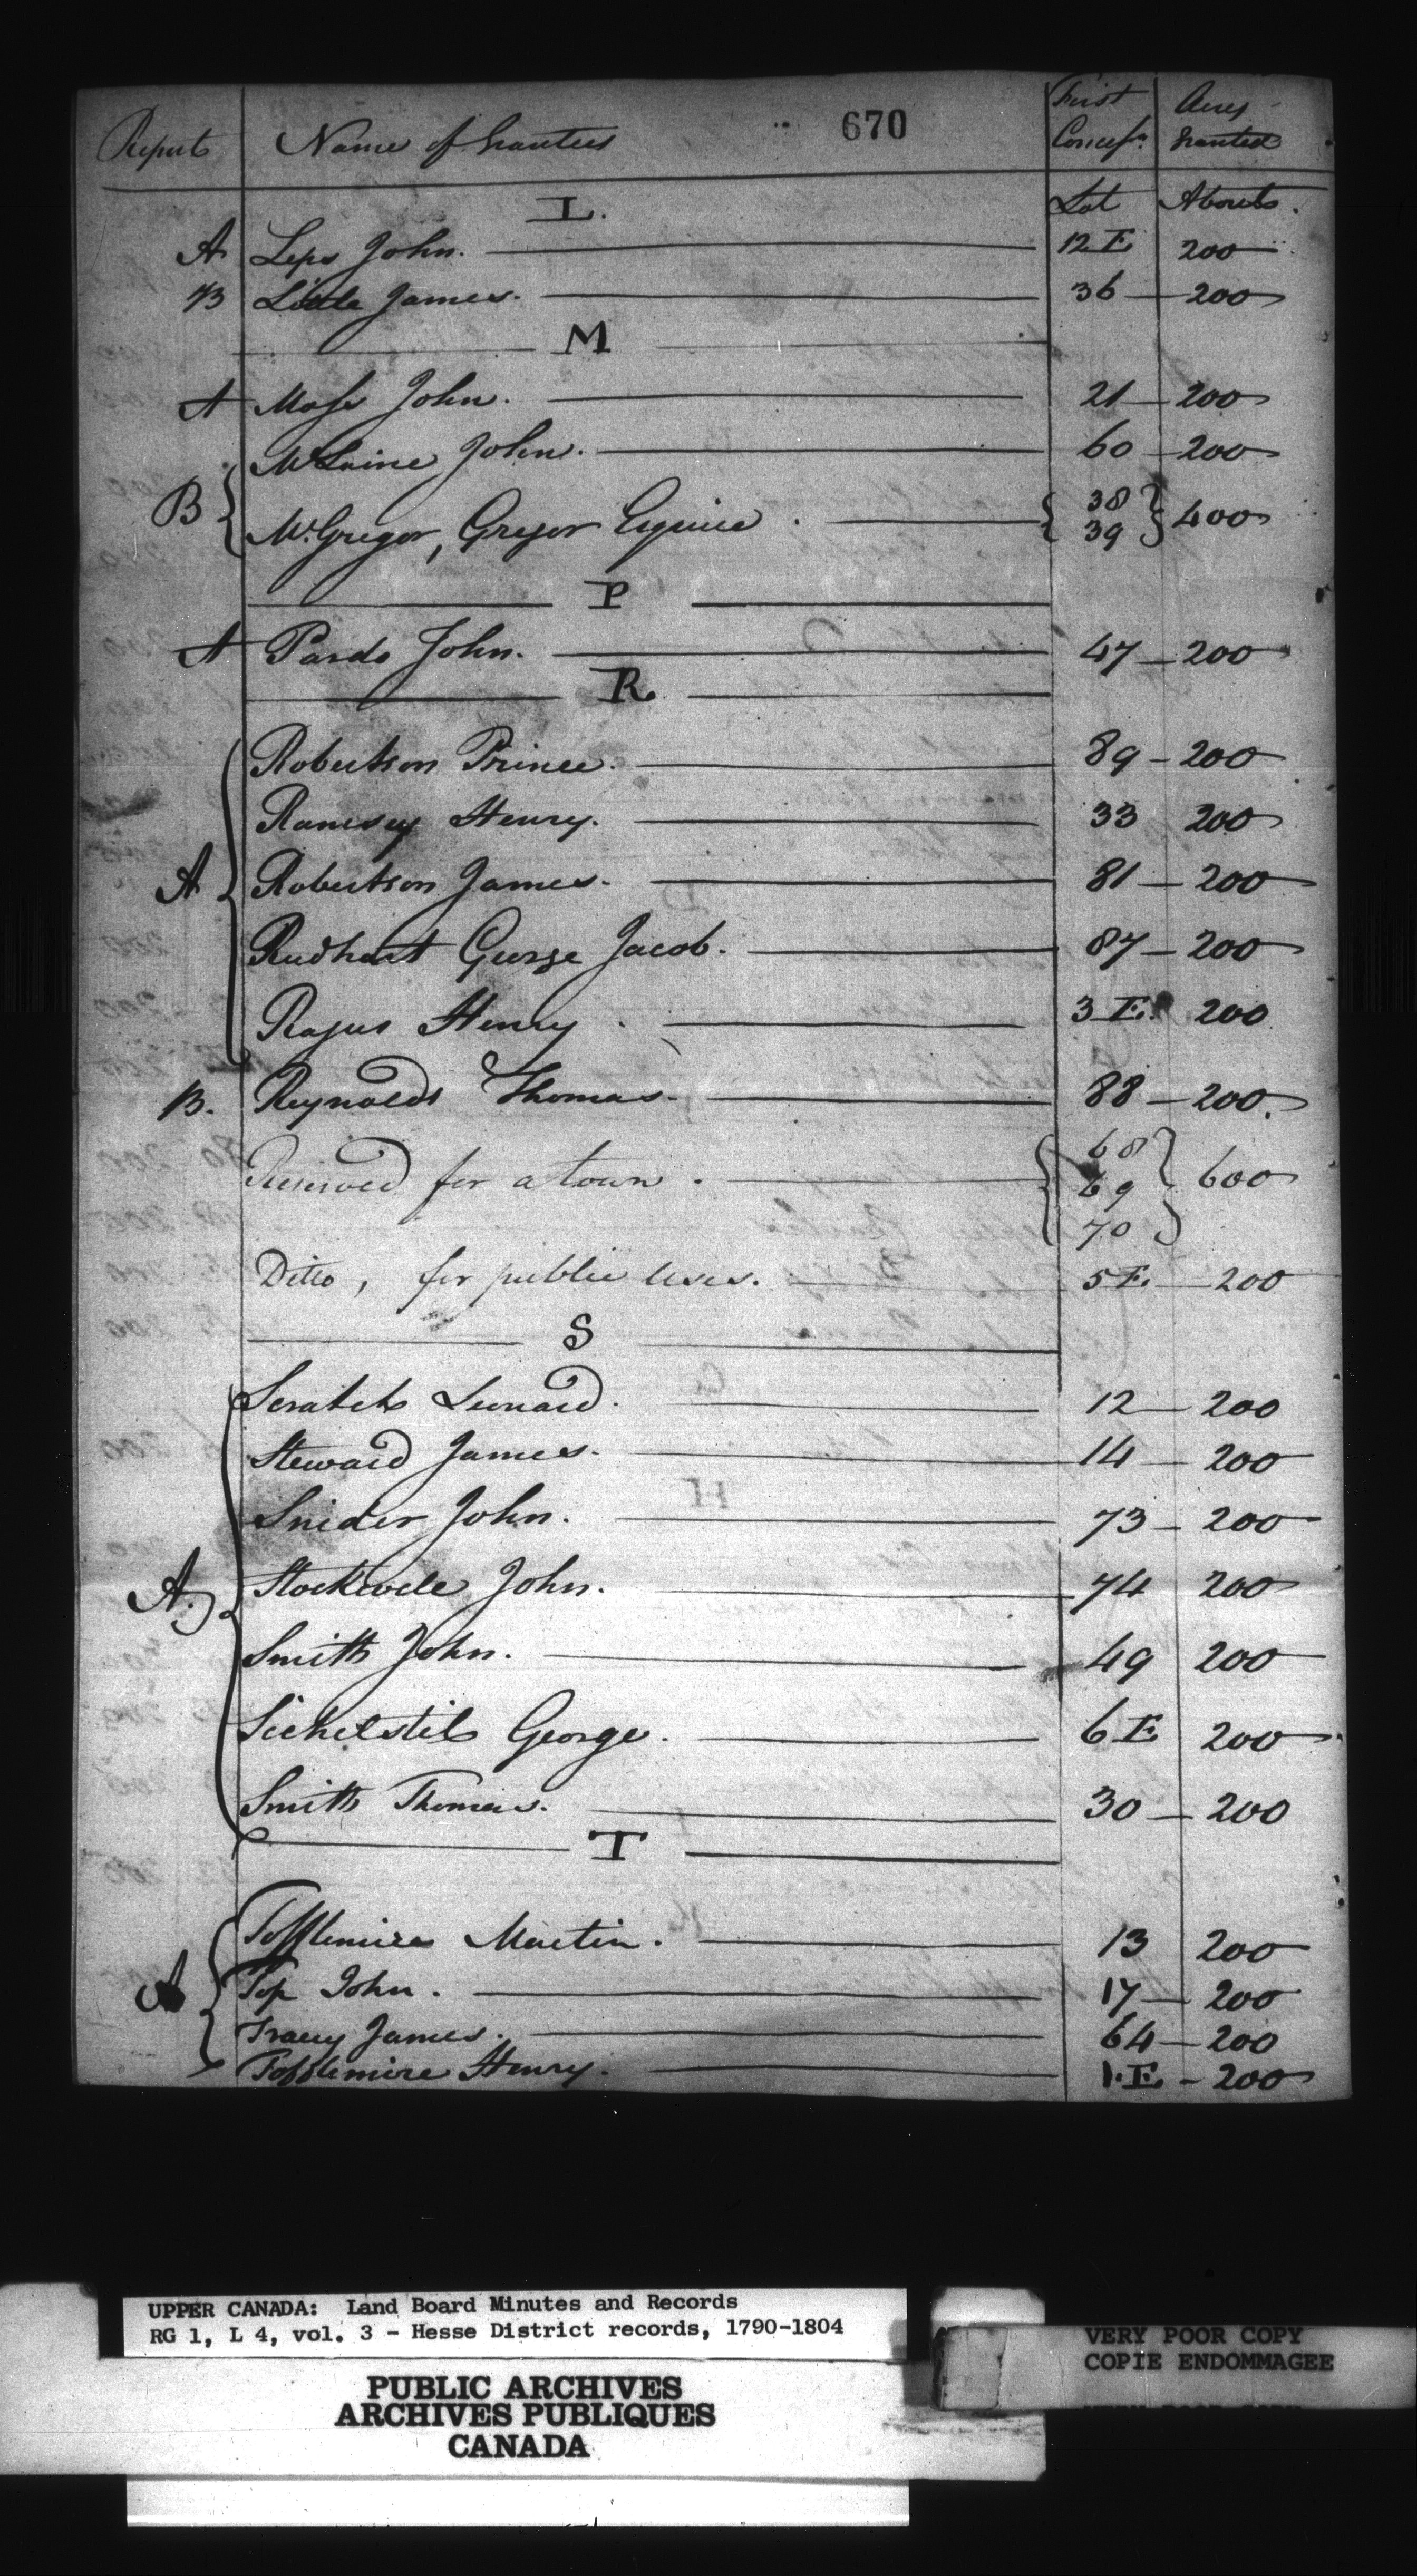 670
Reports Name of Grantees First Concesn. Acres Granted
L. Lot Abouts.
A Leps John. 12 E 200
B Little James. 36 200
M
A Moss John. 21 200
McLaine John. 60 200
B McGregor, Gregor Esquire. 38 39 400
P
A Pardo John. 47 200
R
Robertson Prince. 89 200
Ramsey Henry. 33 200
A Robertson James. 81 200
Rudhart George Jacob. 87 200
Henry. 3 E. 200
B. Reynolds Thomas. 88 200.
Reserved for a town. 68 69 70 600
Ditto, for public uses. 5 E. 200
S
Scratch Leonard. 12 200
Steward James. 14 200
Snider John. 73 200
A. Stockwell John. 74 200
Smith John. 49 200
George. 6 E 200
Smith Thomas. 30 200
T
Tofflemire Martin. 13 200
A Top John. 17 200
Tracey James. 64 200
Tofflemire Henry. 1. E. 200
UPPER CANADA: Land Board Minutes and Records
RG 1, L 4, vol. 3 - Hesse District records, 1790-1804
VERY POOR COPY
COPIE ENDOMMAGEE
PUBLIC ARCHIVES
ARCHIVES PUBLIQUES
CANADA